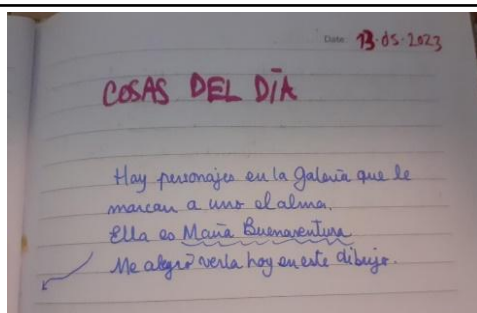 Date: 13.05.2023
COSAS DEL DÍA
Hay personajes en la Galería que le
marcan a uno el alma.
Ella es María Buenaventura
Me alegró verla hoy en este dibujo.